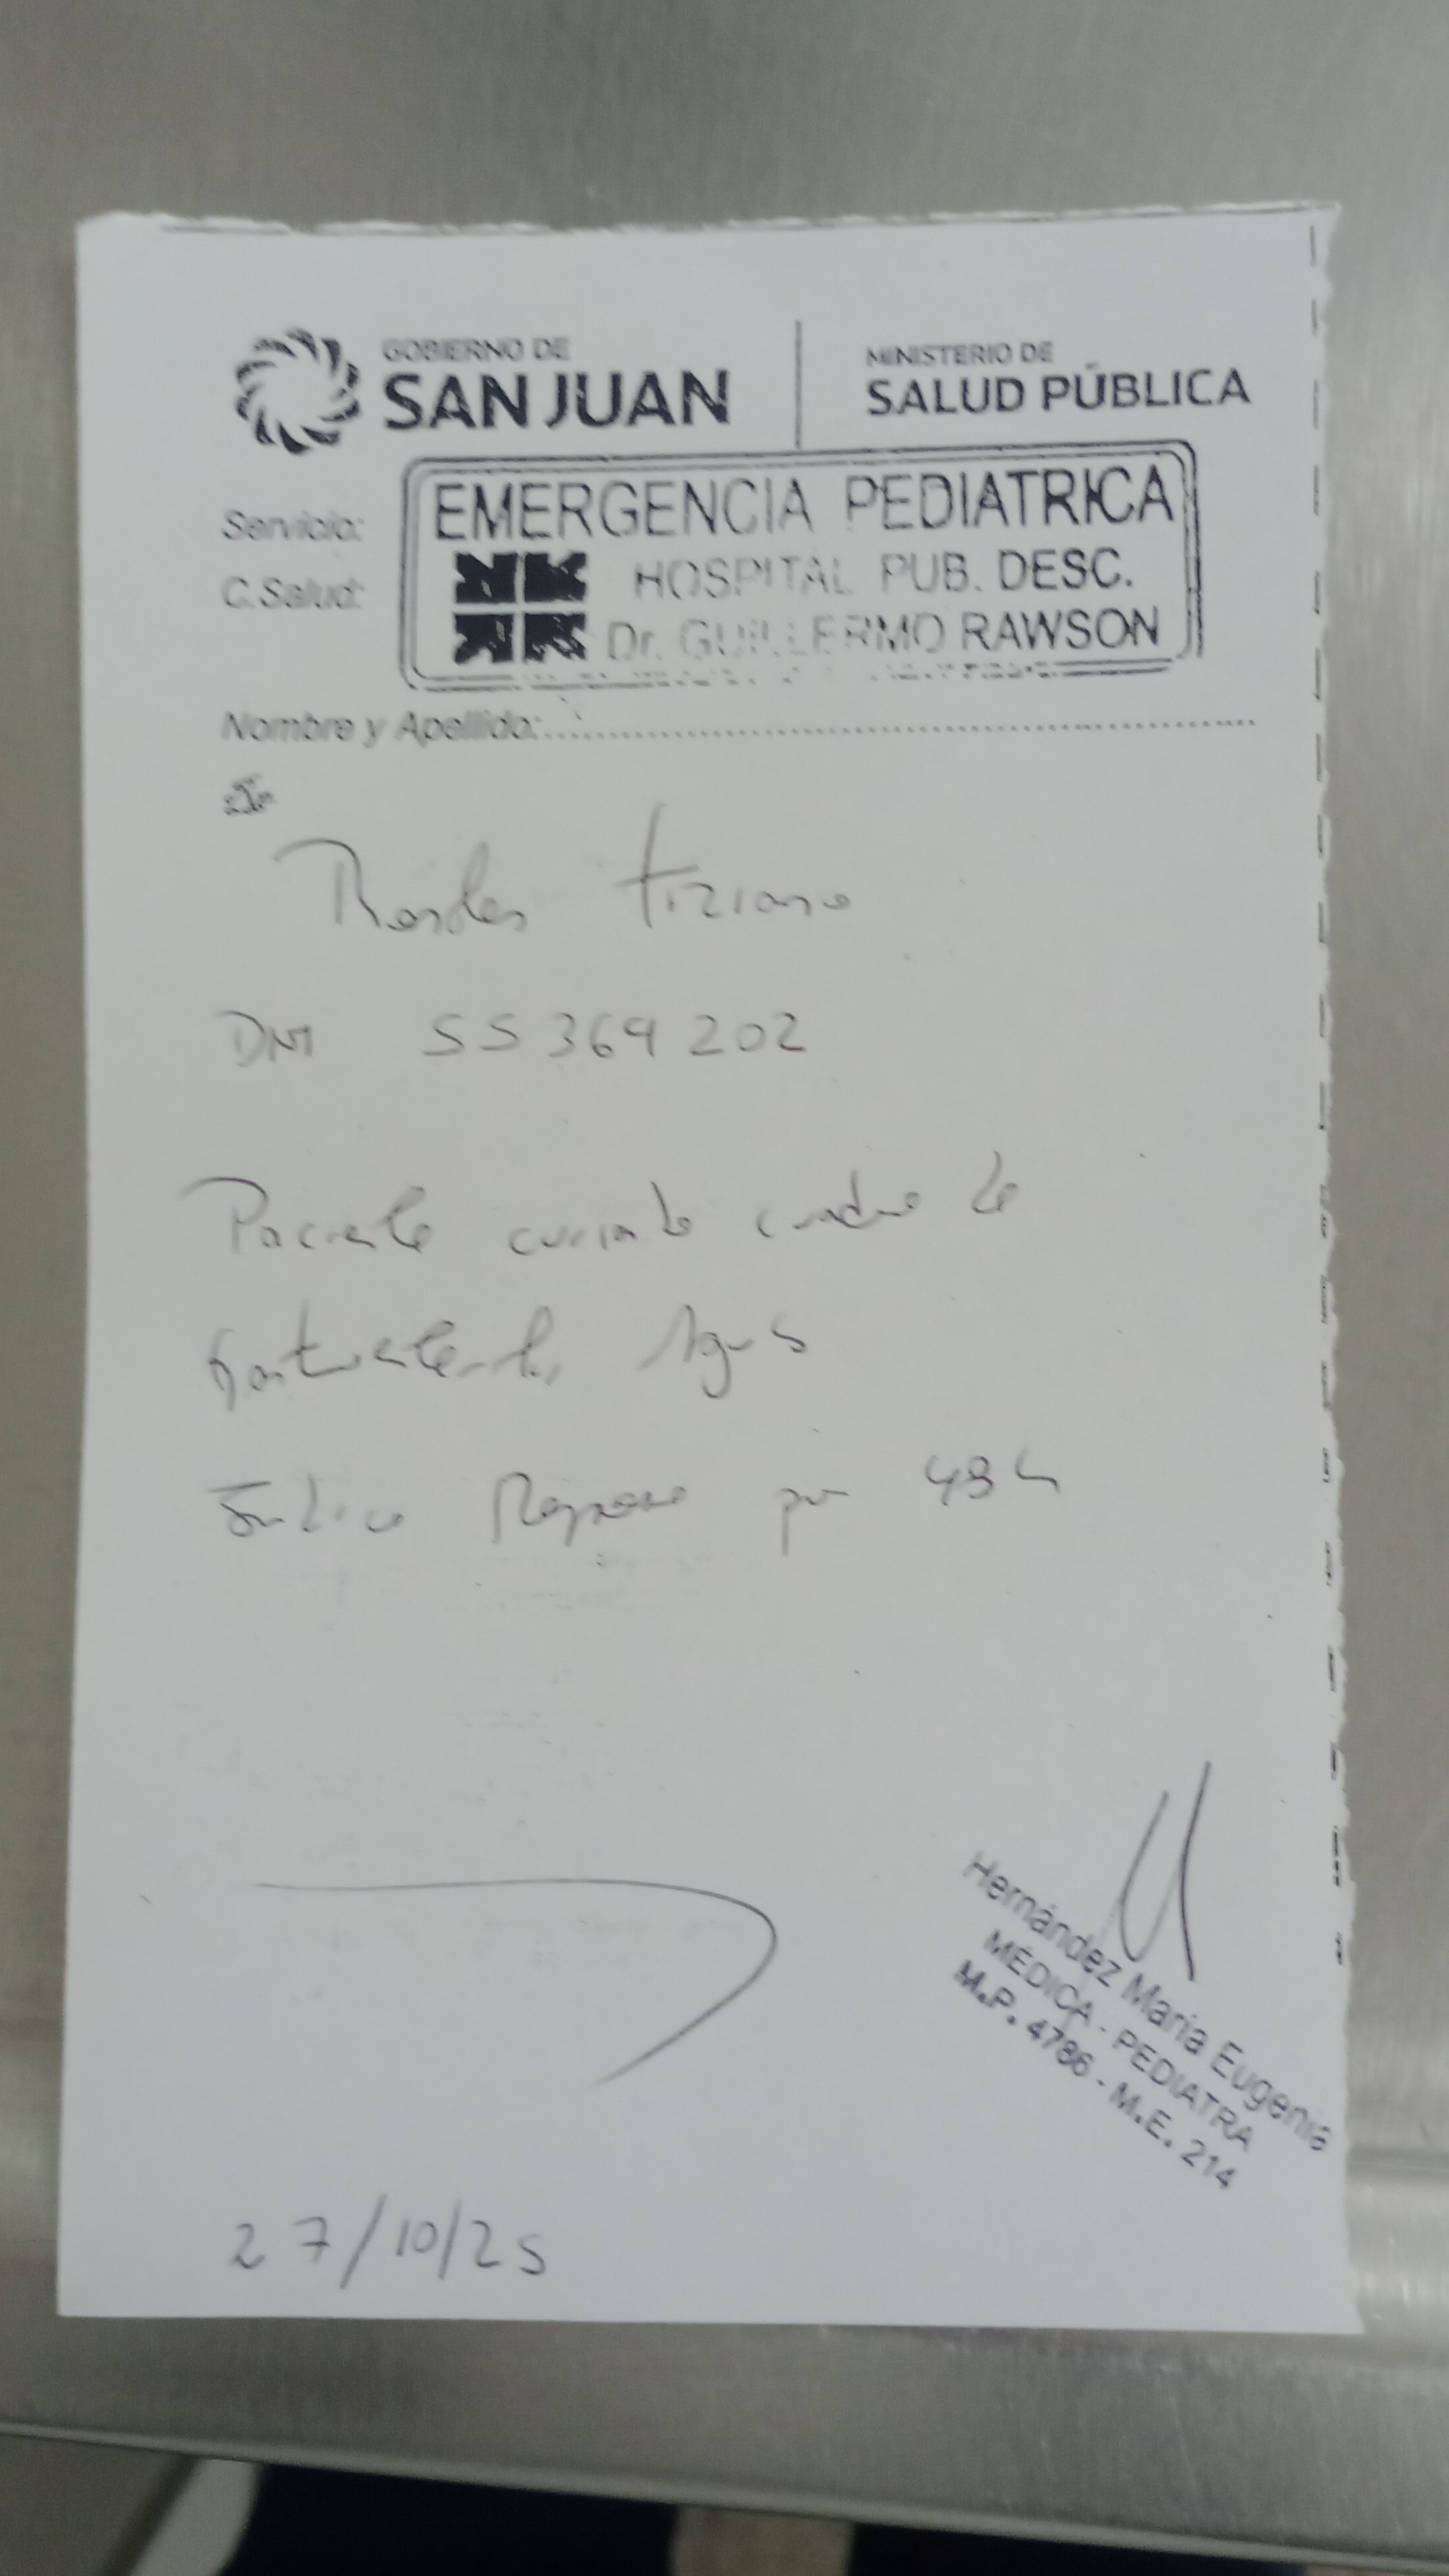 GOBIERNO DE
SAN JUAN
MINISTERIO DE
SALUD PÚBLICA
Servicio:
C.Salud:
EMERGENCIA PEDIATRICA
HOSPITAL PUB. DESC.
Dr. GUILLERMO RAWSON
Nombre y Apellido:
Tiziano
DNI 55369202
Paciente cursando cuadro de
Gastroenteritis Aguda
Indico Reposo por 48 h
Hernández María Eugenia
MÉDICA - PEDIATRA
M.P. 4786 - M.E. 214
27/10/25